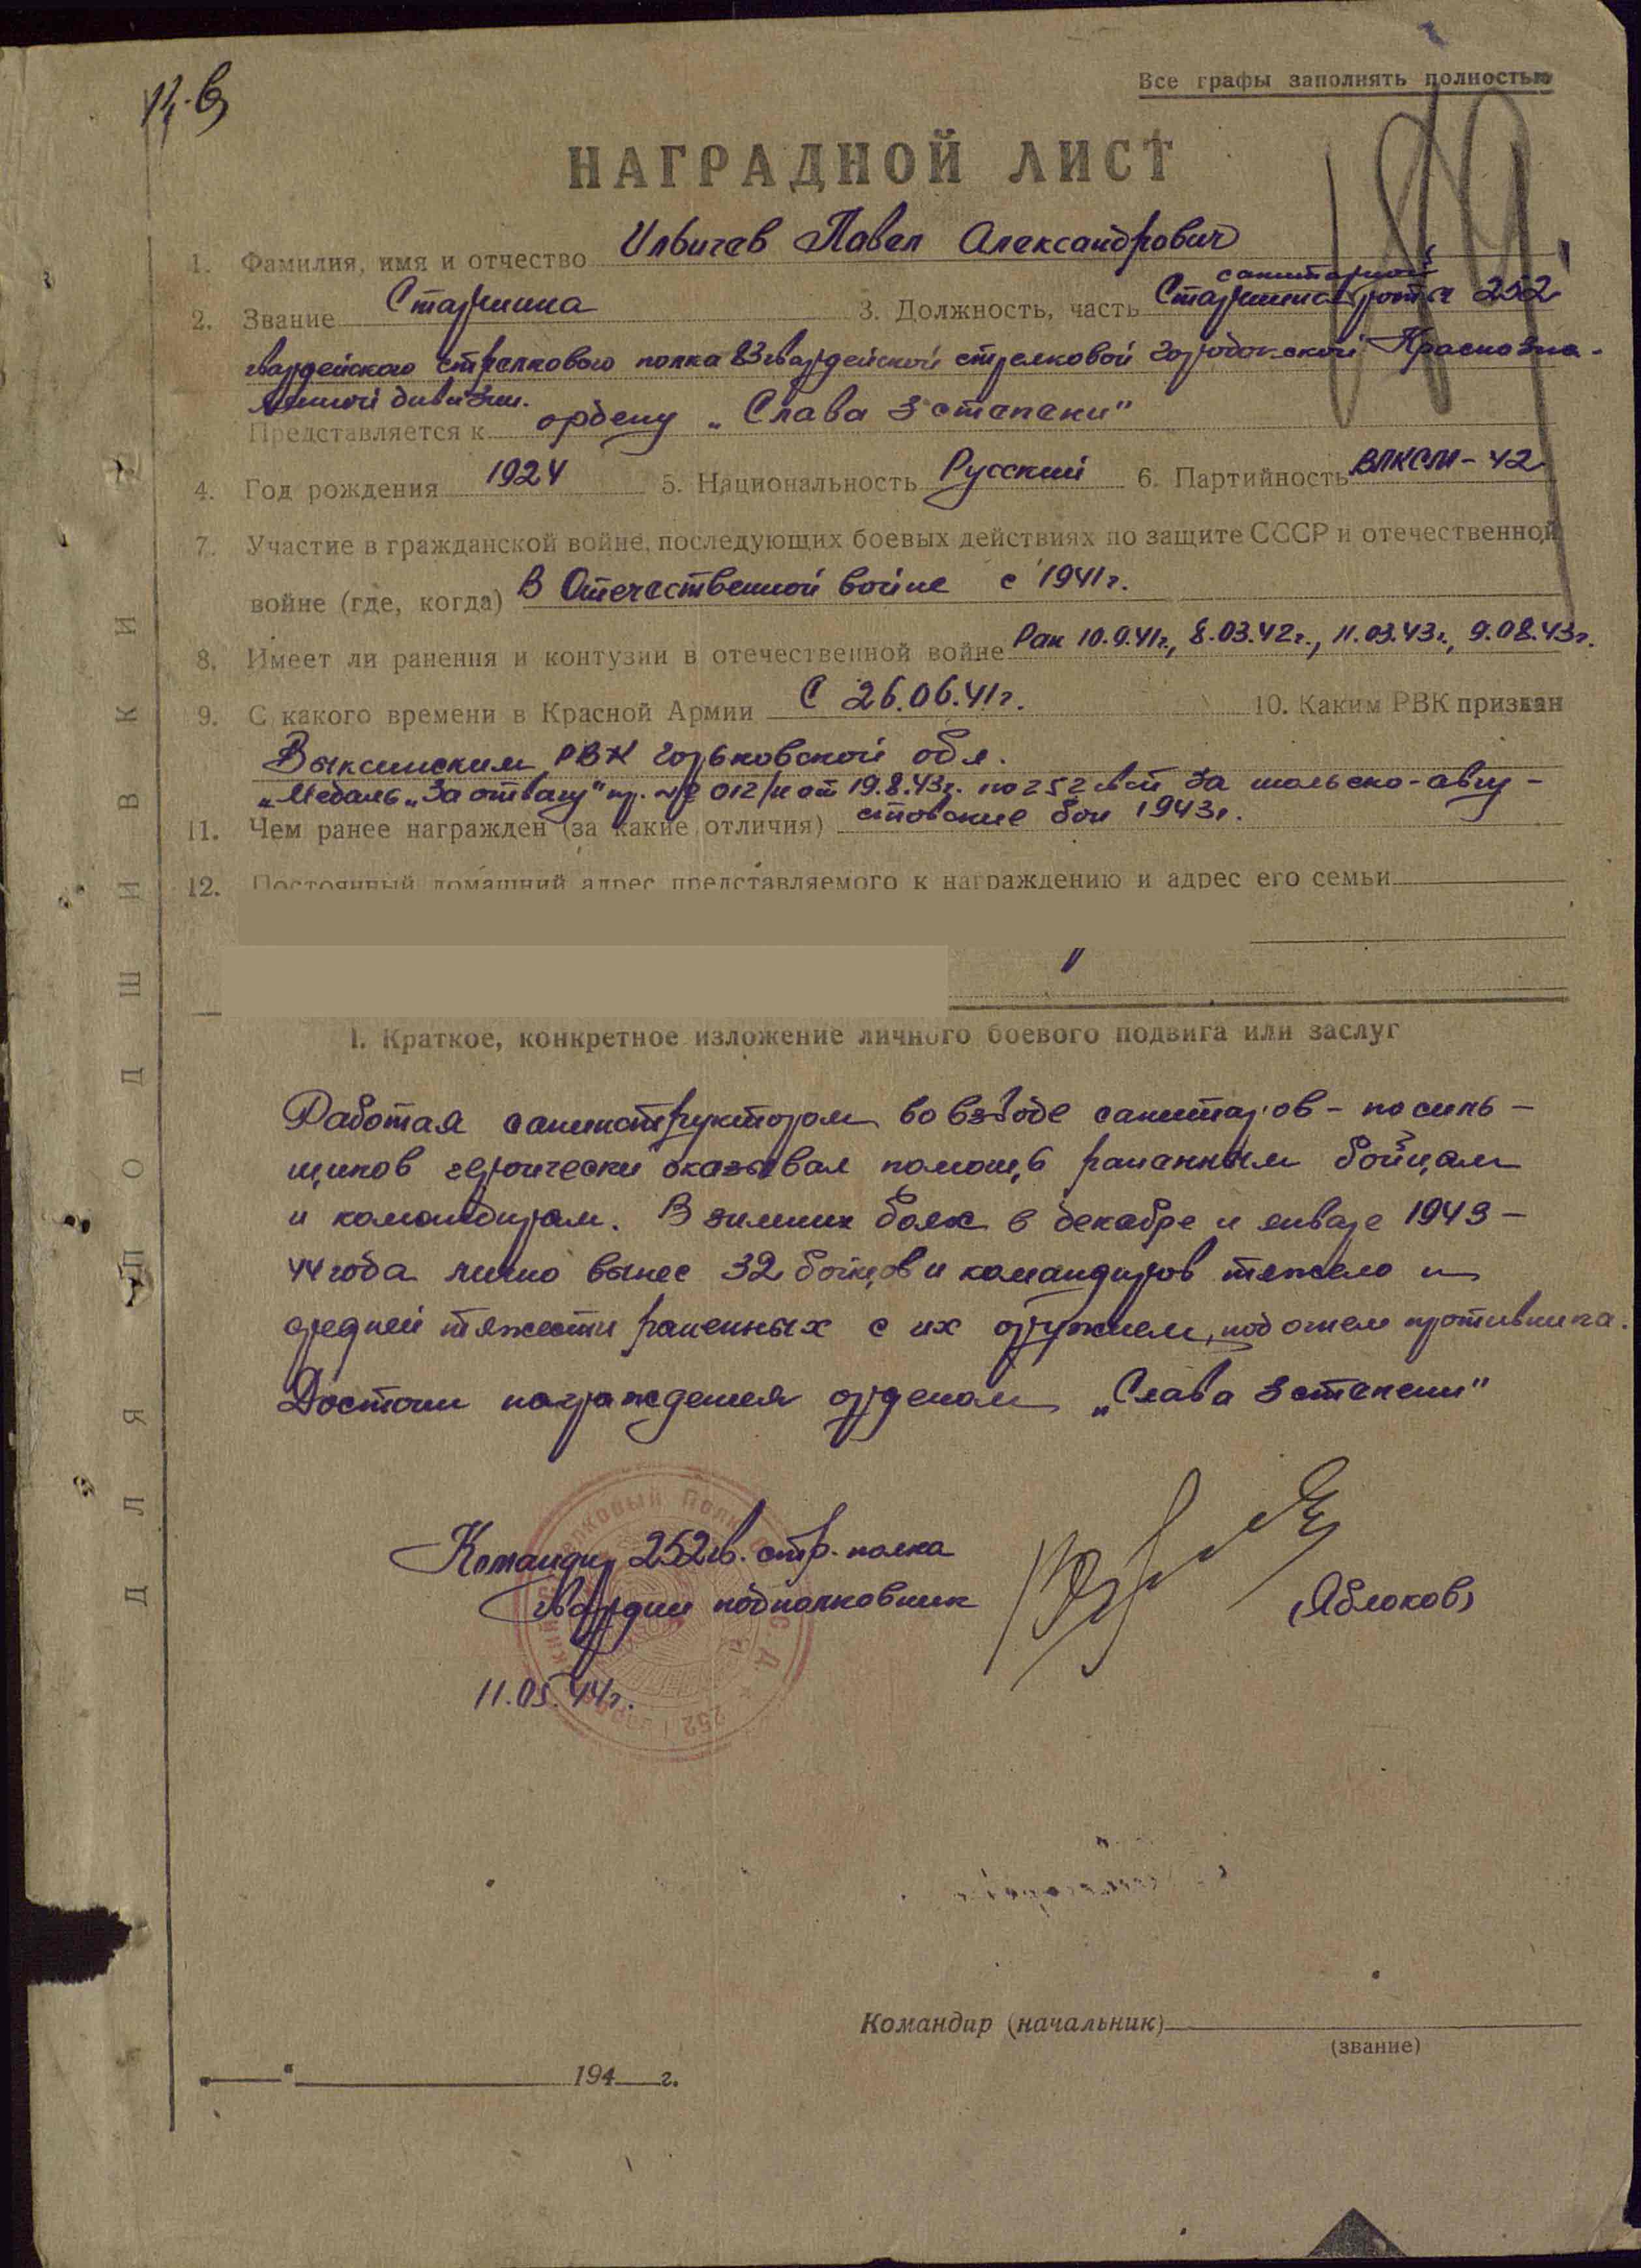 Все графы заполнять полностью
НАГРАДНОЙ ЛИСТ
1. Фамилия, имя и отчество Ильичев Павел Александрович
2. Звание Старшина 3. Должность, часть Старшина санитарной роты 252
гвардейского стрелкового полка 83 гвардейской стрелковой городокской Краснозна-
менной дивизии.
Представляется к ордену „Слава 3 степени"
4. Год рождения 1924 5. Национальность Русский 6. Партийность ВЛКСМ-42
7. Участие в гражданской войне, последующих боевых действиях по защите СССР и отечественной
войне (где, когда) В Отечественной войне с 1941г.
8. Имеет ли ранения и контузии в отечественной войне Ран 10.9.41г., 8.03.42г., 11.03.43г., 9.08.43г.
9. С какого времени в Красной Армии С 26.06.41г. 10. Каким РВК призван
Выксинским РВК Горьковской обл.
„Медаль „За отвагу" пр. № 012/н от 19.8.43г. по 252 гв. сп за июльско-авгу-
11. Чем ранее награжден (за какие отличия) стовские бои 1943г.
12. Постоянный домашний адрес представляемого к награждению и адрес его семьи
I. Краткое, конкретное изложение личного боевого подвига или заслуг
Работая санинструктором во взводе санитаров-носиль-
щиков героически оказывал помощь раненным бойцам
и командирам. В зимних боях в декабре и январе 1943-
44 года лично вынес 32 бойцов и командиров тяжело и
средней тяжести раненных с их оружием, под огнем противника.
Достоин награждения орденом „Слава 3 степени"
Командир 252 гв. стр. полка
Гвардии подполковник (Яблоков)
11.05.44г.
Командир (начальник)
(звание)
„ " 194 г.
ДЛЯ ПОДШИВКИ
189